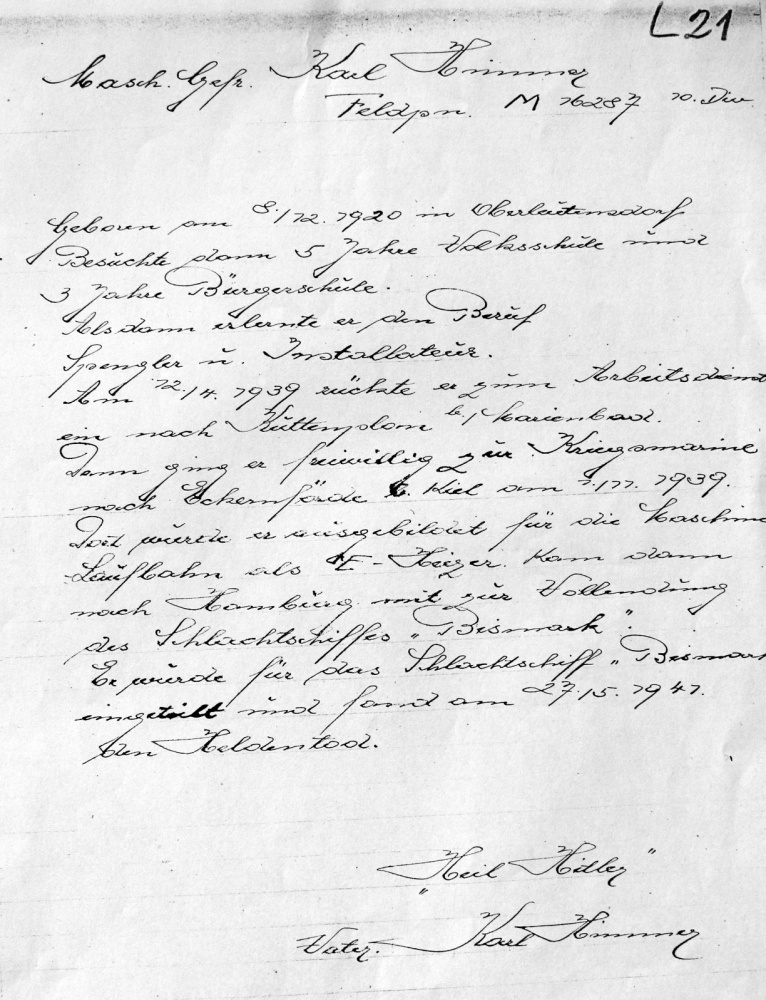 L21
Masch. Gefr. Karl Himmer
Feldpn. M 16287 10. Div
Geboren am 8./12. 1920 in Oberleutensdorf
Besuchte dann 5 Jahre Volksschule und
3 Jahre Bürgerschule.
Alsdann erlernte er den Beruf
Spengler u. Installateur.
Am 12./4. 1939 rückte er zum Arbeitsdienst
ein nach Kuttenplan b./Marienbad.
Dann ging er freiwillig zur Kriegsmarine
nach Eckernförde b. Kiel am 1./11. 1939.
Dort wurde er ausgebildet für die Maschinen
Laufbahn als E-Heizer. Kam dann
nach Hamburg mit zur Vollendung
des Schlachtschiffes „Bismark".
Er wurde für das Schlachtschiff „Bismark
eingeteilt und fand am 27./5. 1941.
den Heldentod.
„Heil Hitler"
Vater. Karl Himmer